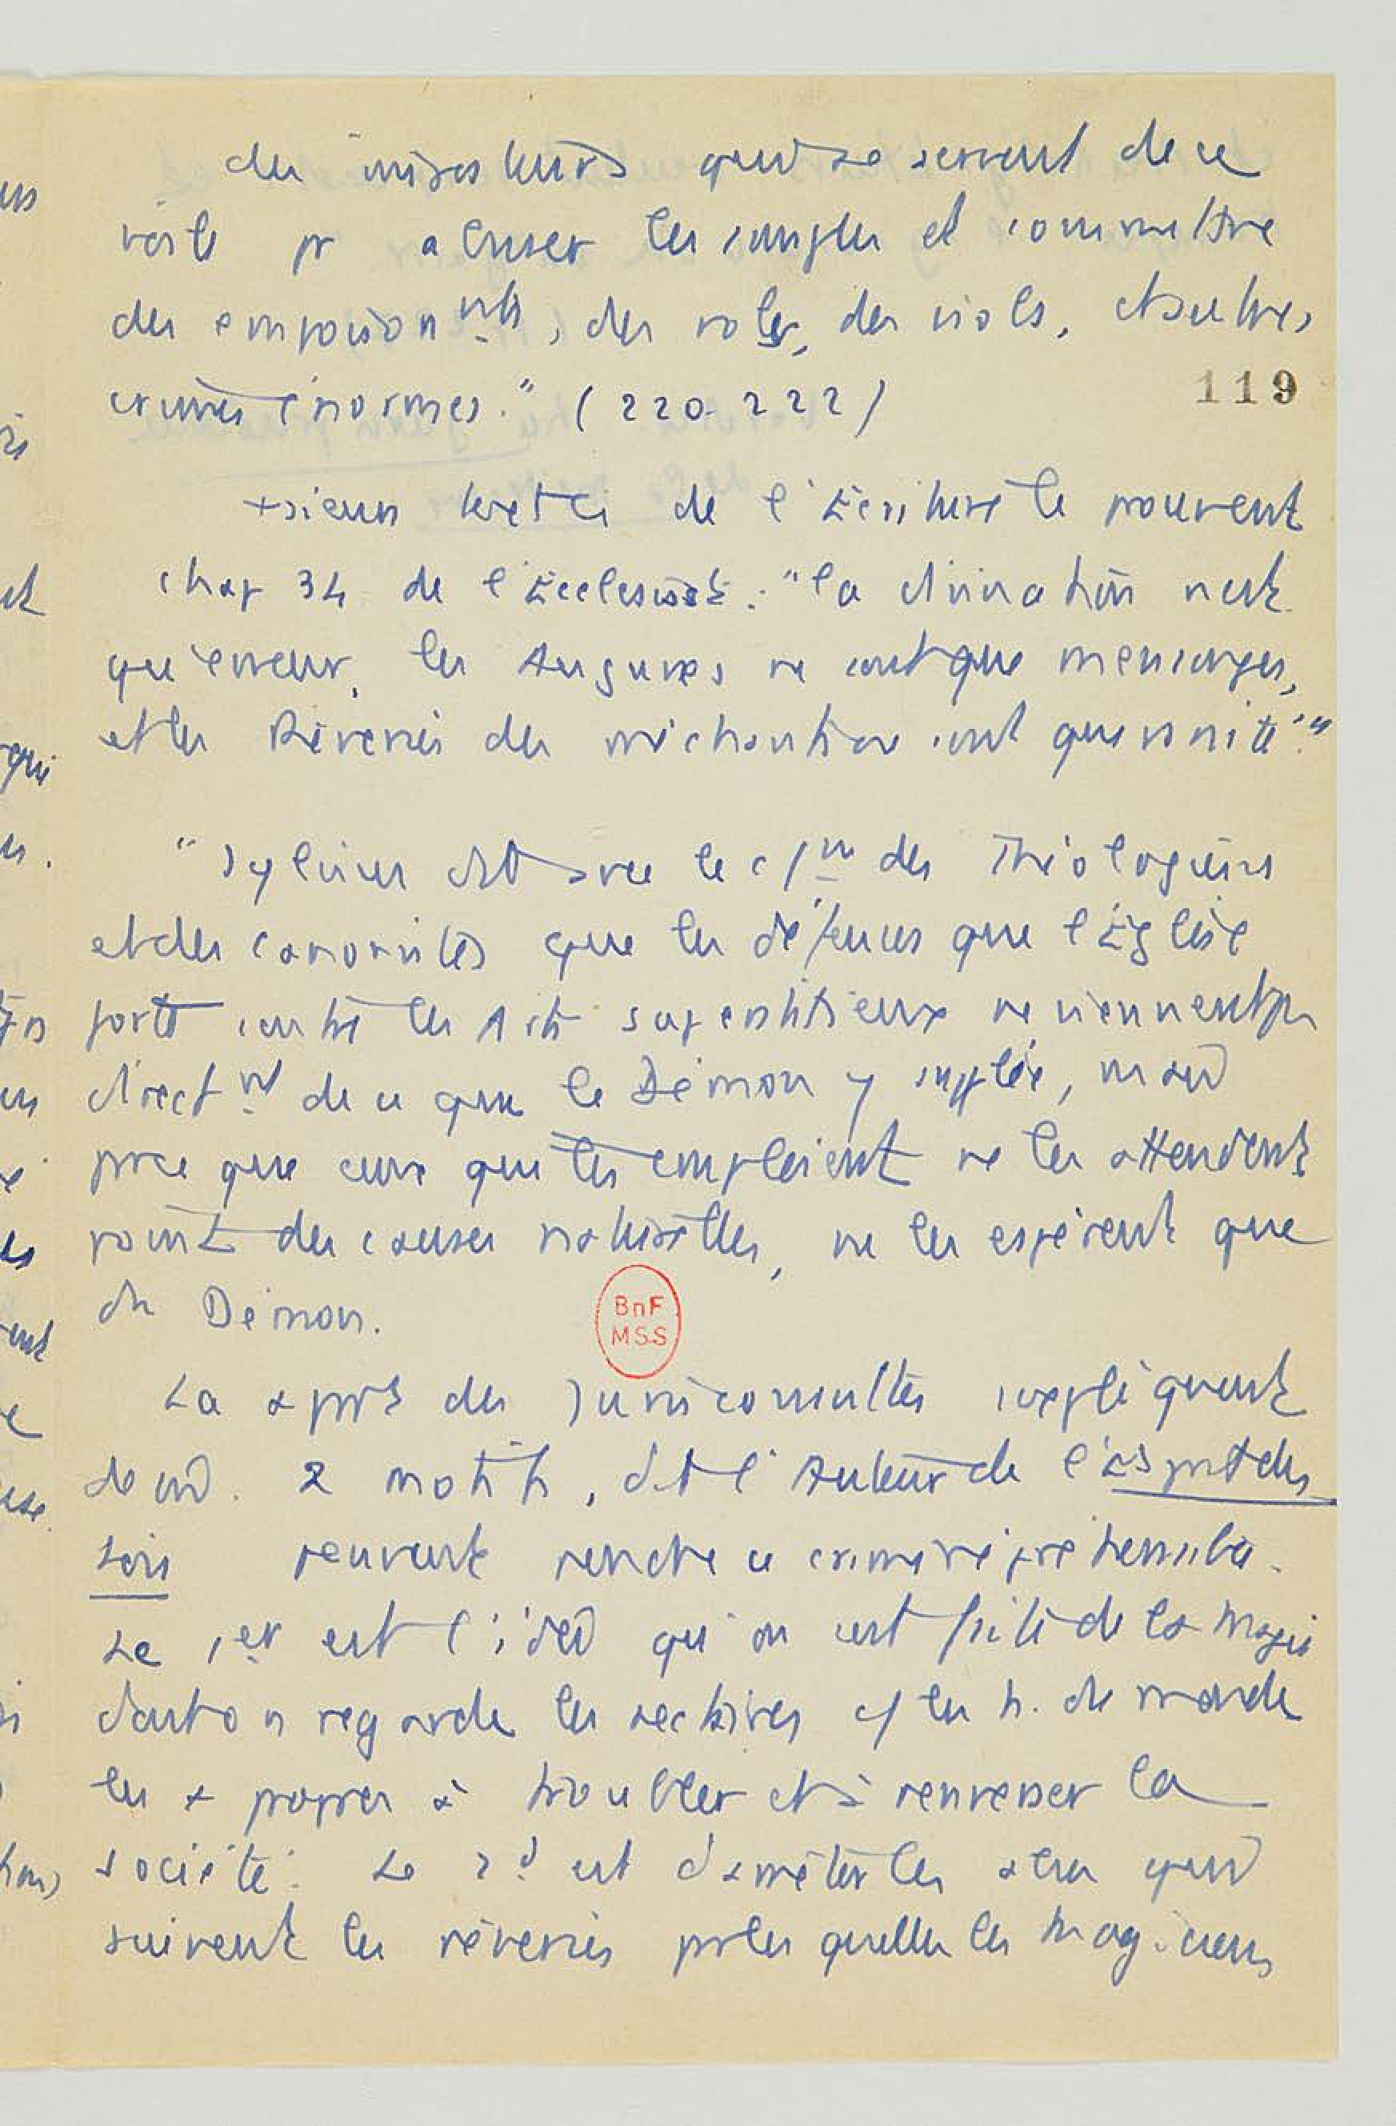 des imposteurs qui se servent de ce
voile pr abuser les simples et commettre
des empoisonnmts, des vols, des viols, et autres
crimes énormes." (220-222)
119
+sieurs textes de l'Ecriture le prouvent
chap 34 de l'Ecclesiast: "la divination n'est
qu'erreur, les Augures ne sont que mensonges,
et les Rêveries des méchants ne sont que vanité"."
"Sylvius dit avec le des Théologiens
et des canonistes que les défenses que l'Eglise
porte contre les Arts superstitieux ne viennent pas
directmt de ce que le Démon y supplée, mais
parce que ceux qui les emploient ne les attendent
point des causes naturelles, ne les espèrent que
du Démon.
BnF
MSS
La des Jurisconsultes s'expliquent
de m̂. 2 motifs, dit l'Auteur de l'Esprit des
Lois peuvent rendre ce crime répréhensible.
Le 1er est l'idée qu'on s'est faite de la Magie
dont on regarde les sectaires c/ les h. du monde
les + propres à troubler et à renverser la
société. Le 2d est les qui
suivent les rêveries par lesquelles les Magiciens